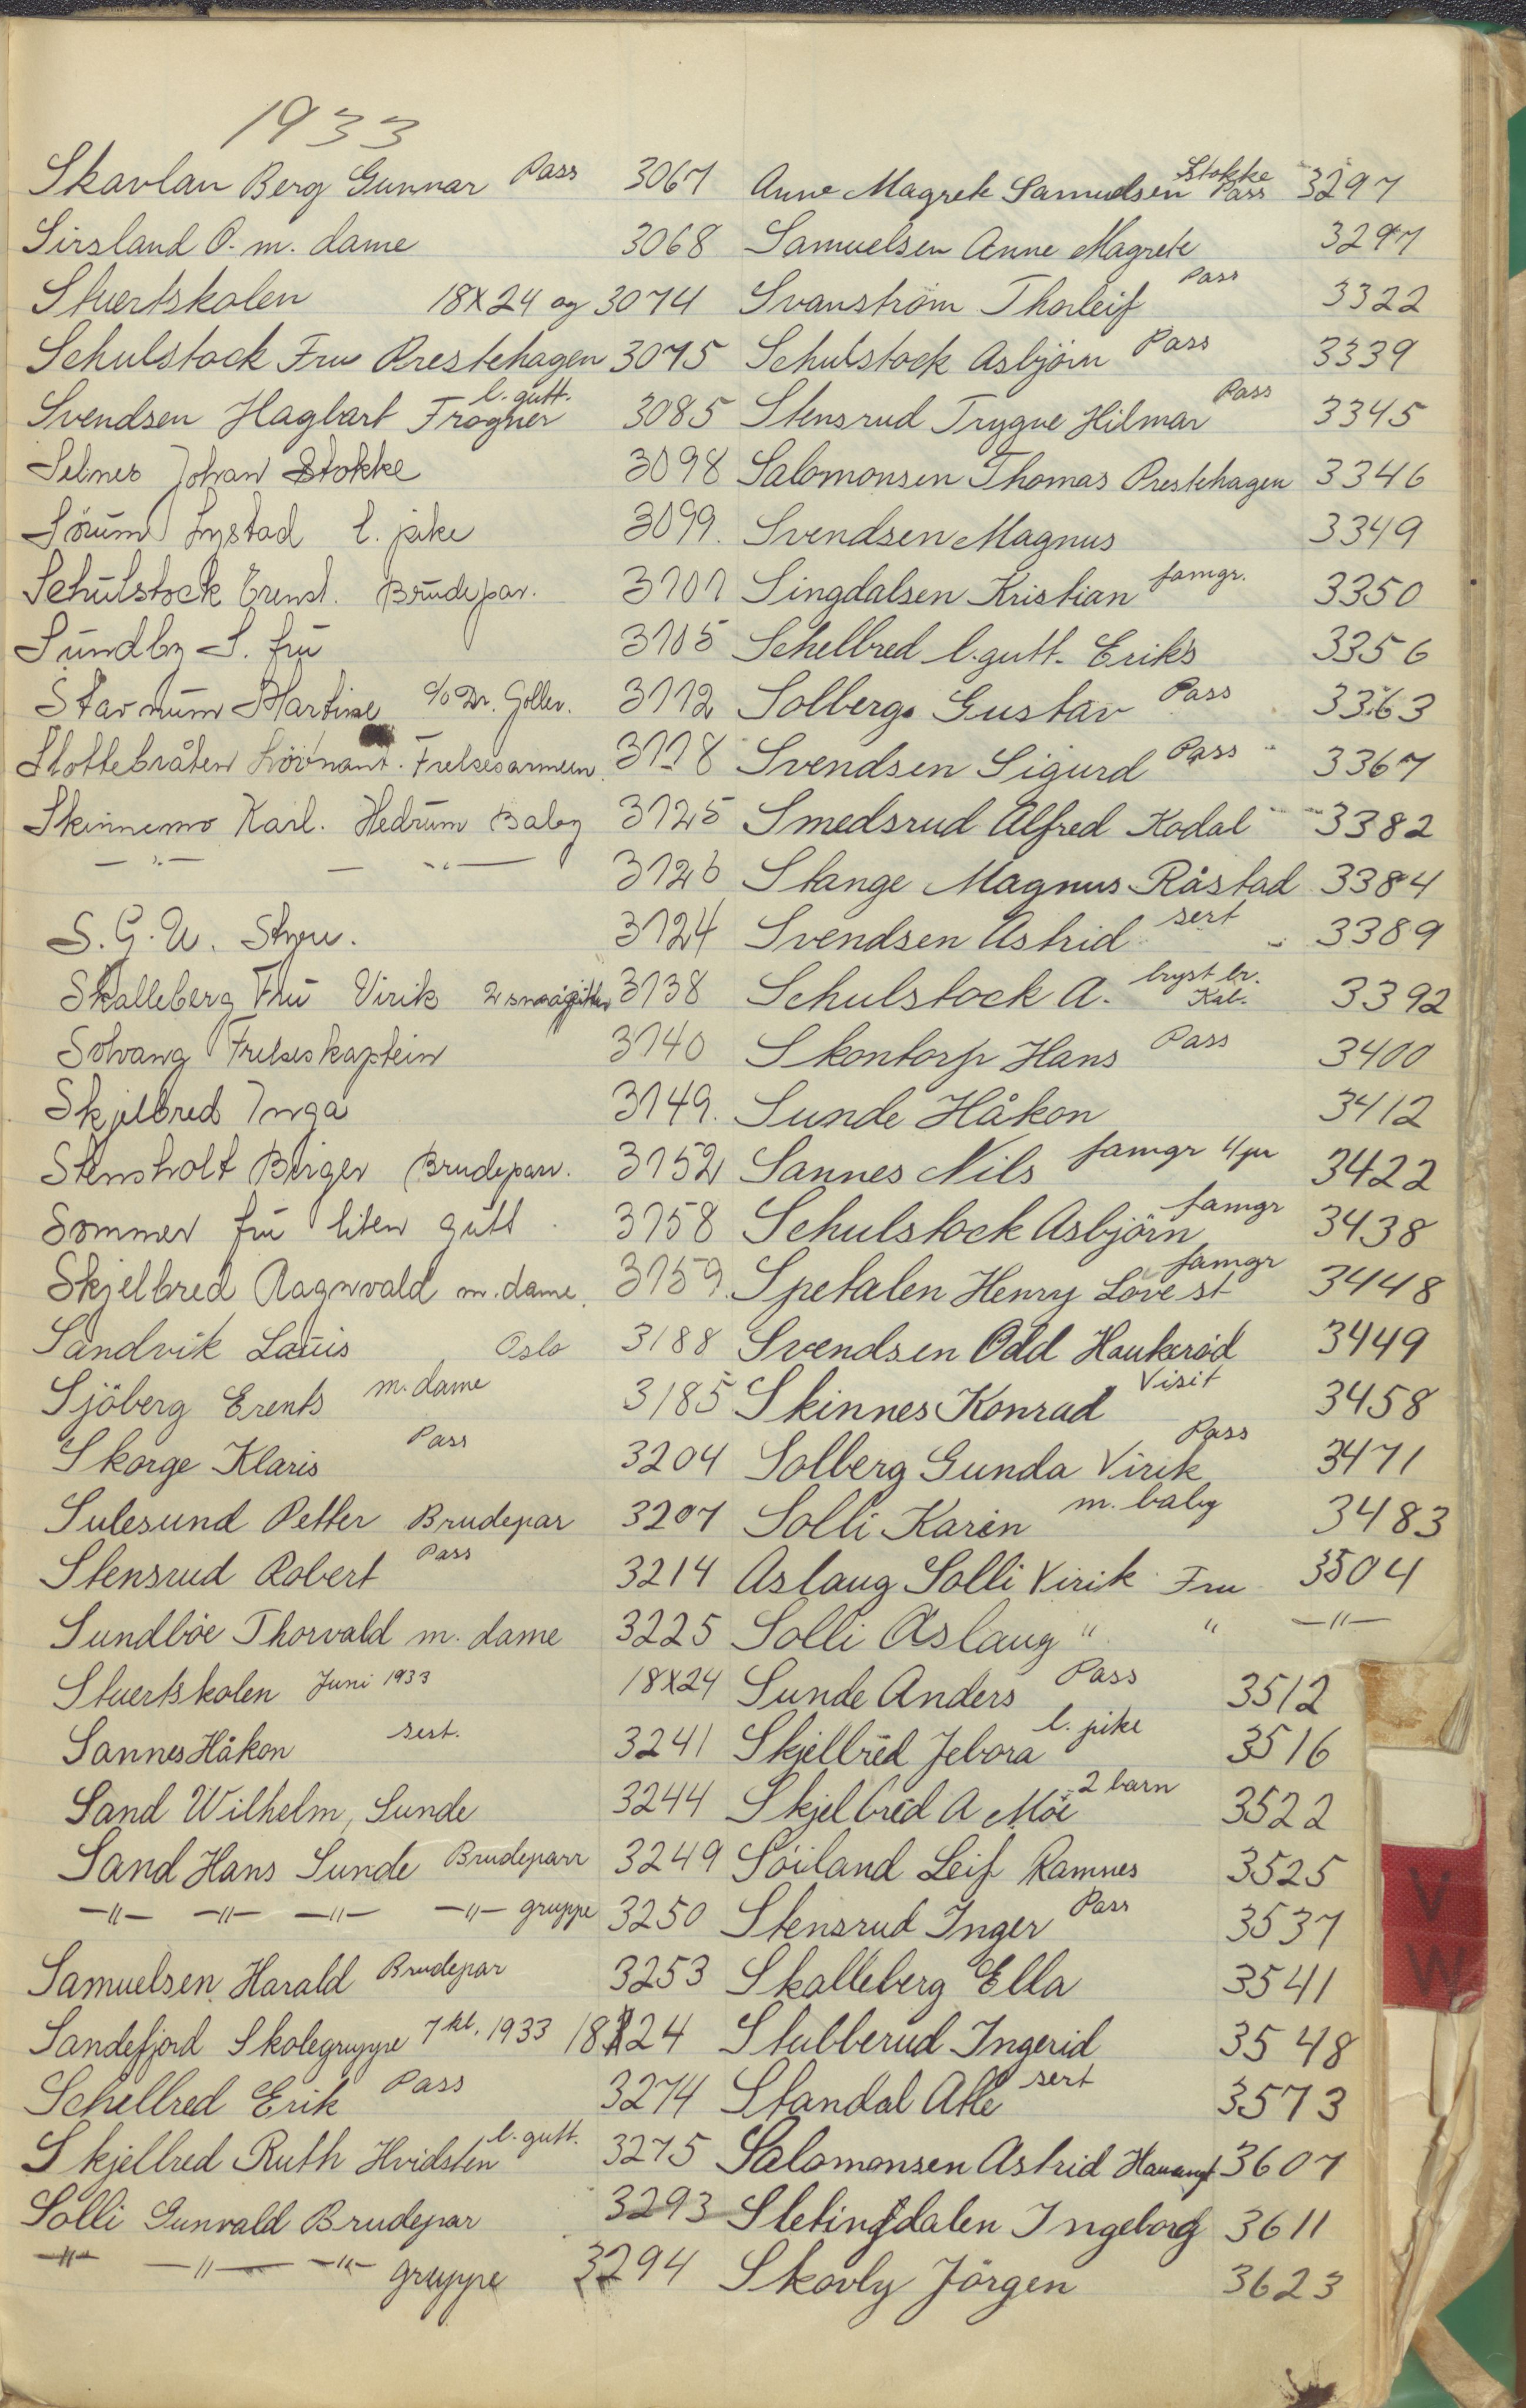 1933
Skavlan Berg Gunnar Pass 3067
Sirsland O. m. dame 3068
Stuertskolen 18x24 og 3074
Schulstock Fru Prestehagen 3075
Svendsen Hagbart Frogner l. gutt. 3085
Selnes Johan Stokke 3098
Sörum Lystad l. pike 3099.
Schulstock Ernst. Brudepar. 3101
Sundby S. fru 3105
Starnum Martine c/o Dr. Goller. 3112
Slottebråten Lövnant. Frelsesarmeen. 3118
Skinnemo Karl. Hedrum Baby 3125
—"— — —"— 3126
S. G. U. Styre. 3124
Skalleberg Fru Virik 2 smågutter 3138
Solvang Frelseskaptein 3140
Skjelbred Inga 3149.
Stensholt Birger Brudepar. 3152
Sommer fru liten gutt. 3158
Skjelbred Ragnvald m. dame. 3159.
Sandvik Lauis Oslo 3188
Sjöberg Erents m. dame 3185
Skorge Klaris Pass 3204
Sulesund Petter Brudepar 3207
Stensrud Robert Pass 3214
Sundböe Thorvald m. dame 3225
Stuertskolen Juni 1933 18x24
Sannes Håkon sert. 3241
Sand Wilhelm, Sunde 3244
Sand Hans Sunde Brudeparr 3249
—"— —"— —"— —"— gruppe 3250
Samuelsen Harald Brudepar 3253
Sandefjord Skolegruppe 7 kl. 1933 18x24
Schellred Erik Pass 3274
Skjellred Ruth Hvidsten l. gutt. 3275
Solli Gunvald Brudepar 3293
—"— —"— —"— gruppe 3294
Anne Magrete Samuelsen Stokke Pass 3297
Samuelsen Anne Magrete 3297
Svanström Thorleif Pass 3322
Schulstock Asbjörn Pass 3339
Stensrud Trygve Hilmar Pass 3345
Salomonsen Thomas Prestehagen 3346
Svendsen Magnus 3349
Singdalsen Kristian famgr. 3350
Schellred l. gutt. Eriks 3356
Solberg Gustav Pass 3363
Svendsen Sigurd Pass 3367
Smedsrud Alfred Kodal 3382
Stange Magnus Råstad 3384
Svendsen Astrid sert 3389
Schulstock A. bryst br. Kab. 3392
Skontorp Hans Pass 3400
Sunde Håkon 3412
Sannes Nils famgr 3422
Schulstock Asbjörn famgr 3438
Spetalen Henry Löve st famgr 3448
Svendsen Odd Haukeröd 3449
Skinnes Konrad Visit 3458
Solberg Gunda Virik Pass 3471
Solli Karen m. baby 3483
Aslaug Solli Virik Fru 3504
Solli Aslaug " " —"—
Sunde Anders Pass 3512
Skjellred Jebora l. pike 3516
Skjelbred A Möe 2 barn 3522
Söiland Leif Ramnes 3525
Stensrud Inger Pass 3537
Skalleberg Ella 3541
Stubberud Ingerid 3548
Standal Atle sert 3573
Salomonsen Astrid 3607
Sletingdalen Ingeborg 3611
Skovly Jörgen 3623
V
W